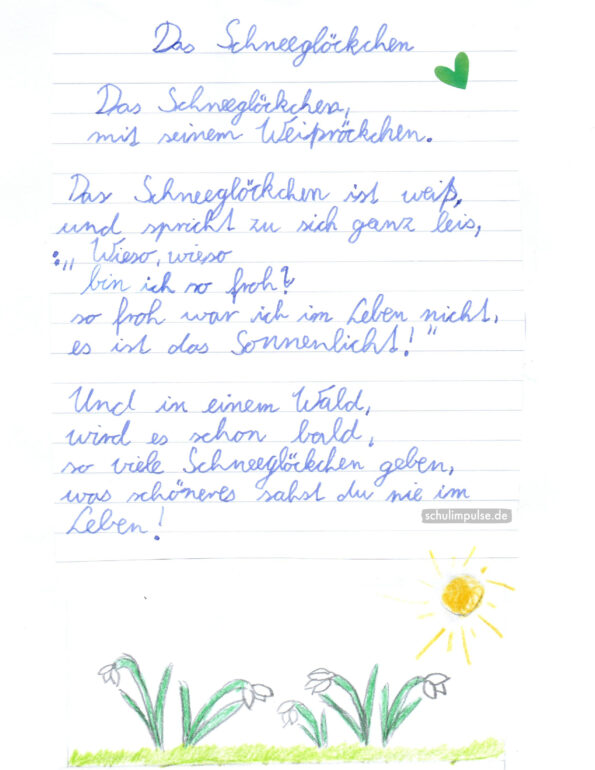 Das Schneeglöckchen
Das Schneeglöckchen,
mit seinem Weißröckchen.
Das Schneeglöckchen ist weiß,
und spricht zu sich ganz leis,
:„Wieso, wieso
bin ich so froh?
so froh war ich im Leben nicht,
es ist das Sonnenlicht!"
Und in einem Wald,
wird es schon bald,
so viele Schneeglöckchen geben,
was schöneres sahst du nie im
Leben!
schulimpulse.de